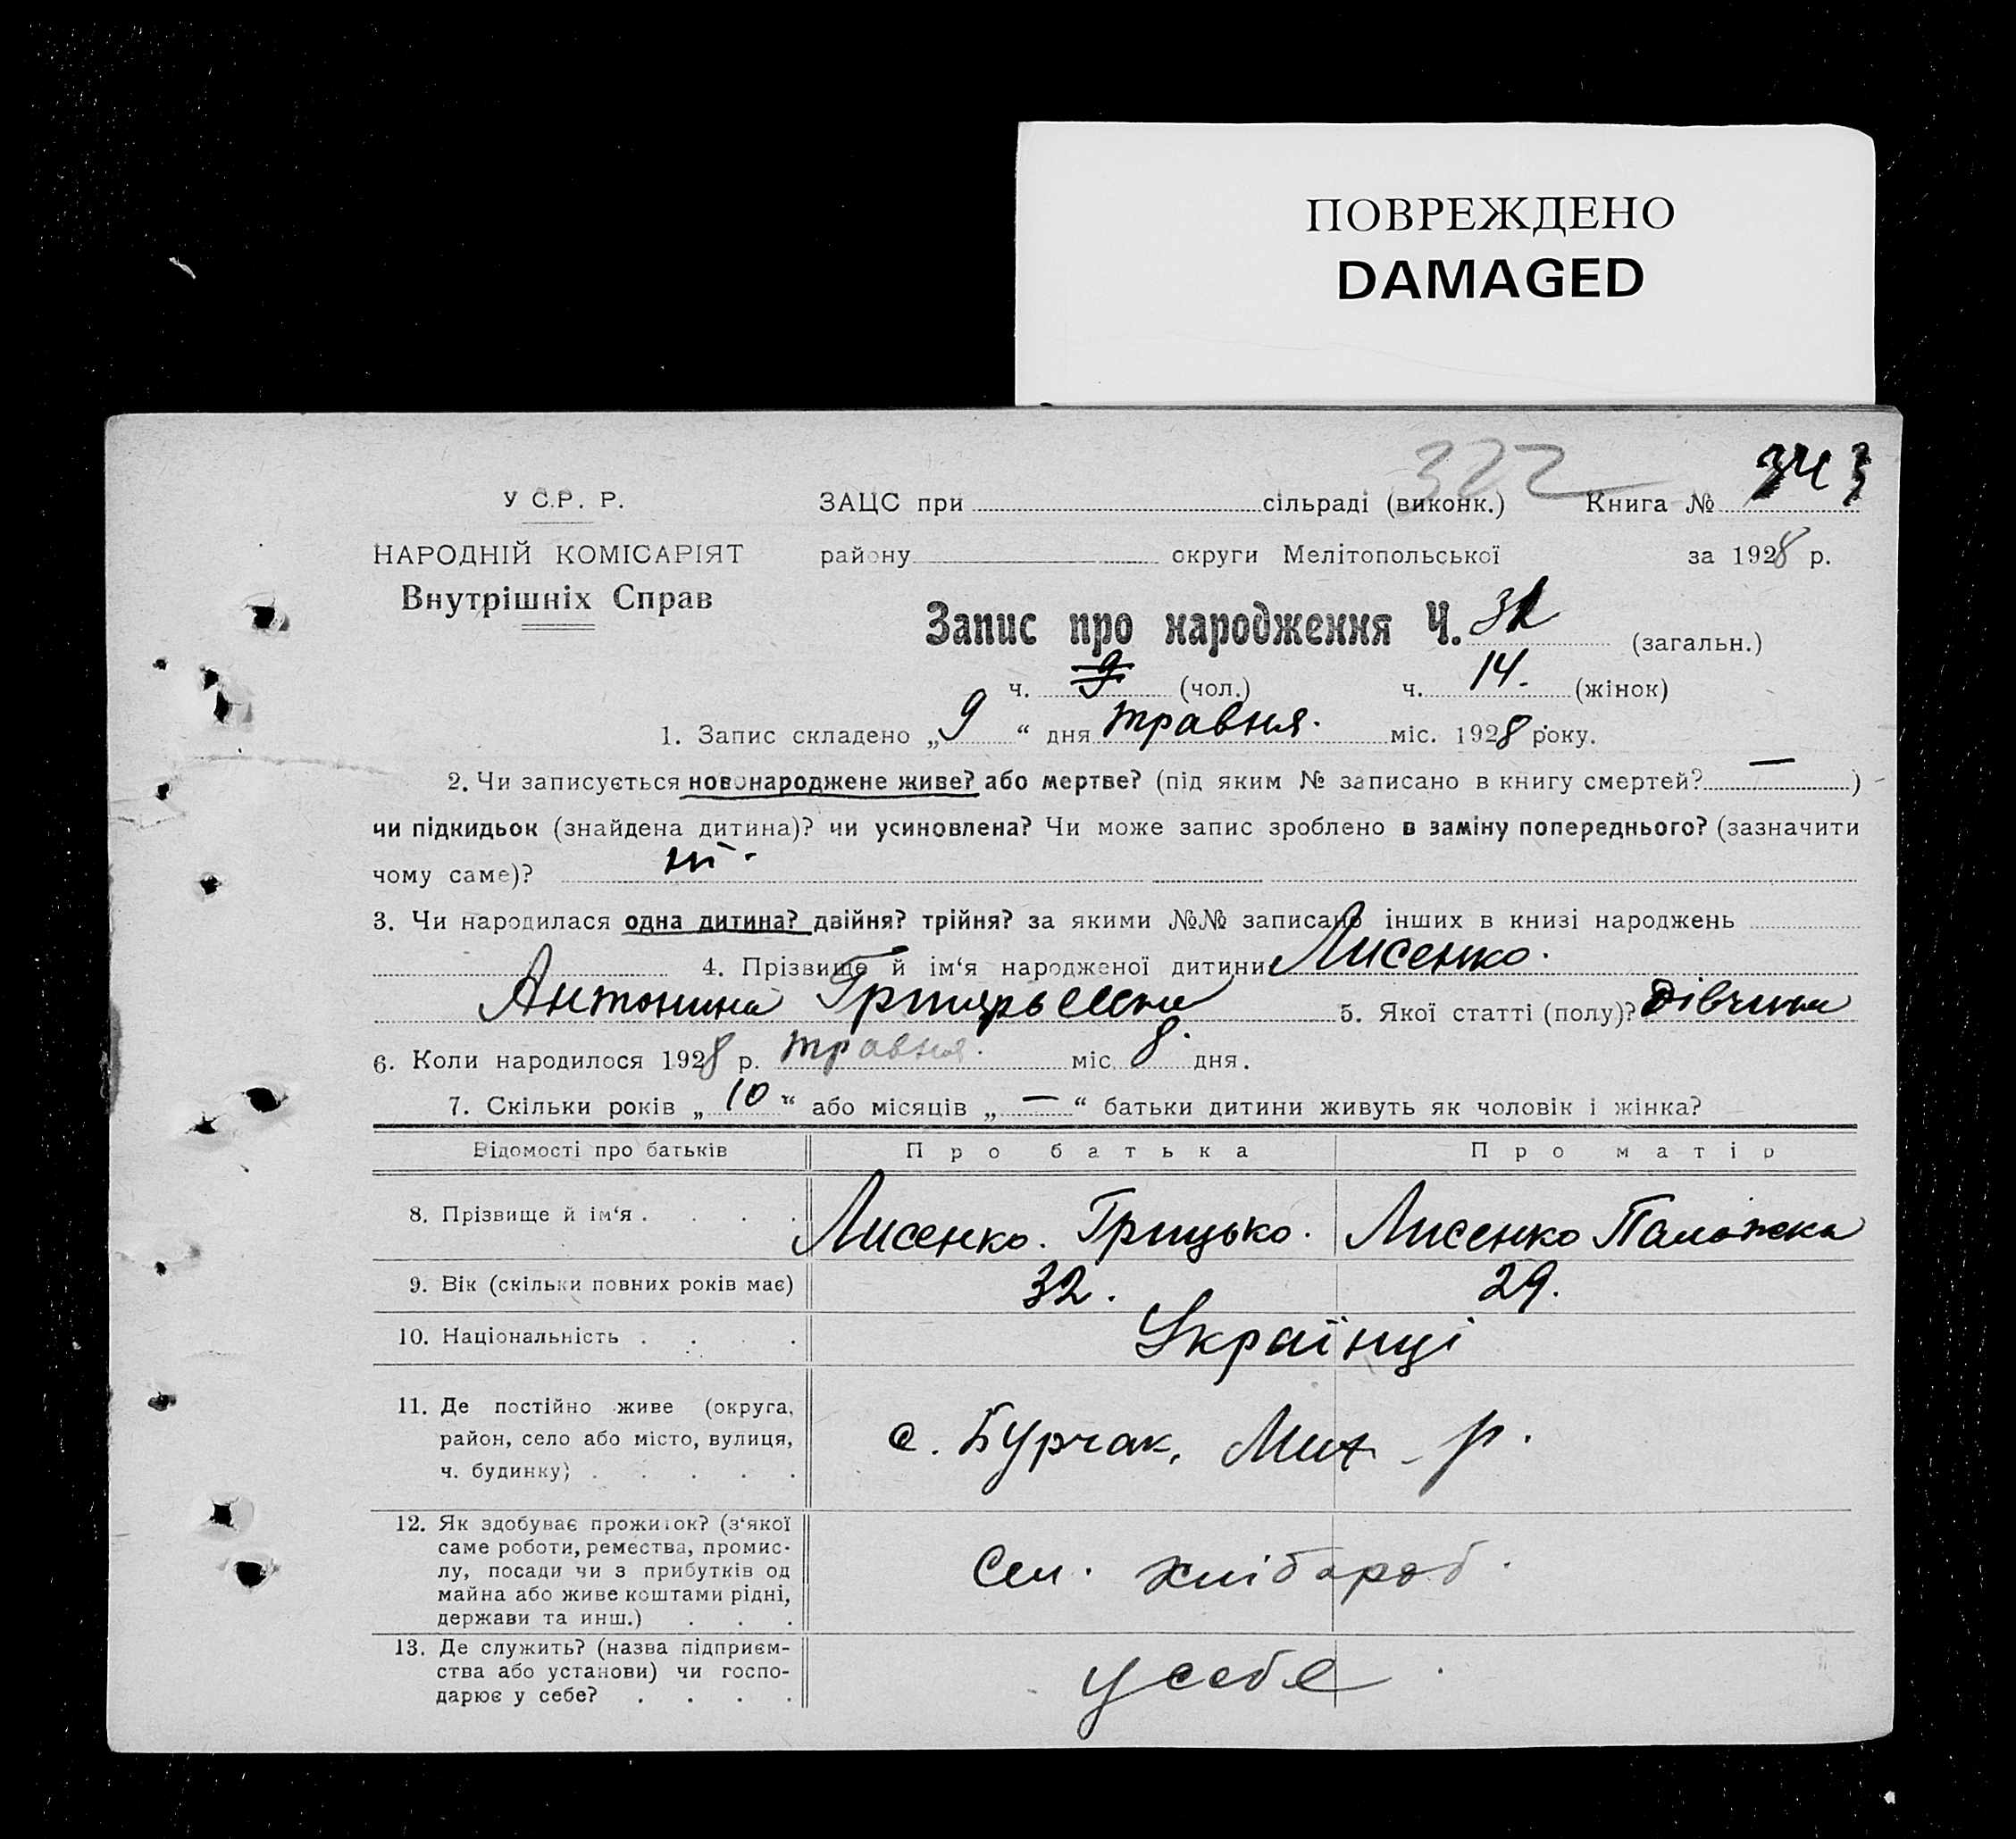 ПОВРЕЖДЕНО
DAMAGED
322
У С.Р. Р. ЗАЦС при сільраді (виконк.) Книга № 343
НАРОДНІЙ КОМІСАРІЯТ району округи Мелітопольської за 1928 р.
Внутрішніх Справ
Запис про народження Ч. (загальн.)
ч. 9 (чол.) ч. 14. (жінок)
1. Запис складено „9“ дня травня. міс. 1928 року.
2. Чи записується новонароджене живе? або мертве? (під яким № записано в книгу смертей? — )
чи підкидьок (знайдена дитина)? чи усиновлена? Чи може запис зроблено в заміну попереднього? (зазначити
чому саме)? ні.
3. Чи народилася одна дитина? двійня? трійня? за якими №№ записано інших в книзі народжень
4. Прізвище й ім‘я народженої дитини Лисенко.
Антонина 5. Якої статті (полу)? дівчина
6. Коли народилося 1928 р. травня. міс. 8. дня.
7. Скільки років „10“ або місяців „—“ батьки дитини живуть як чоловік і жінка?
Відомості про батьків Про батька Про матір
8. Прізвище й ім‘я . . . . Лисенко. Грицько. Лисенко Палажка
9. Вік (скільки повних років має) 32. 29.
10. Національність . . . . Українці
11. Де постійно живе (округа,
район, село або місто, вулиця,
ч. будинку) . . . . . с. Бурчак, Мих - р.
12. Як здобуває прожиток? (з‘якої
саме роботи, ремества, промис-
лу, посади чи з прибутків од
майна або живе коштами рідні,
держави та инш.) . . . Сел. хлібороб.
13. Де служить? (назва підприєм-
ства або установи) чи госпо-
дарює у себе? . . . . у себе